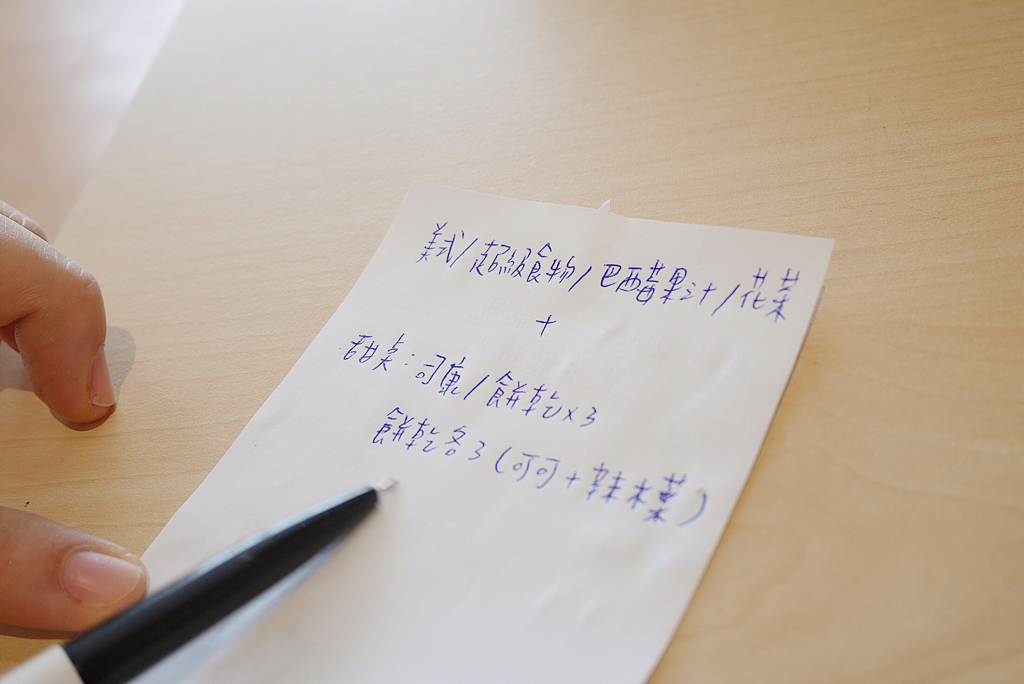 美式/超級食物/巴西莓果汁/花菜
+
甜点:司康/餅乾x3
餅乾各3(可可+辣木葉)